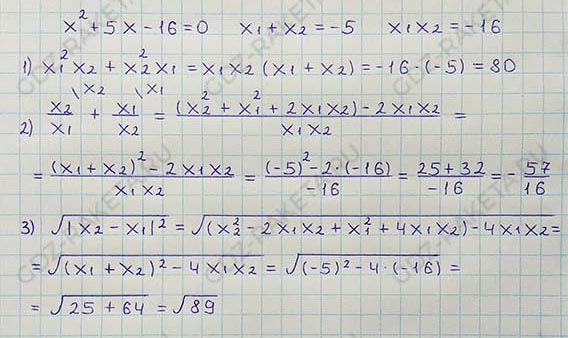 x²+5x-16=0 x₁+x₂=-5 x₁x₂=-16
1) x₁²x₂+x₂²x₁=x₁x₂(x₁+x₂)=-16·(-5)=80
2) x₂\x₂/x₁ + x₁\x₁/x₂ = (x₂²+x₁²+2x₁x₂)-2x₁x₂/x₁x₂ =
= (x₁+x₂)²-2x₁x₂/x₁x₂ = (-5)²-2·(-16)/-16 = 25+32/-16 = -57/16
3) √|x₂-x₁|² = √(x₂²-2x₁x₂+x₁²+4x₁x₂)-4x₁x₂ =
= √(x₁+x₂)²-4x₁x₂ = √(-5)²-4·(-16) =
= √25+64 = √89
GDZ-RAKETA.RU